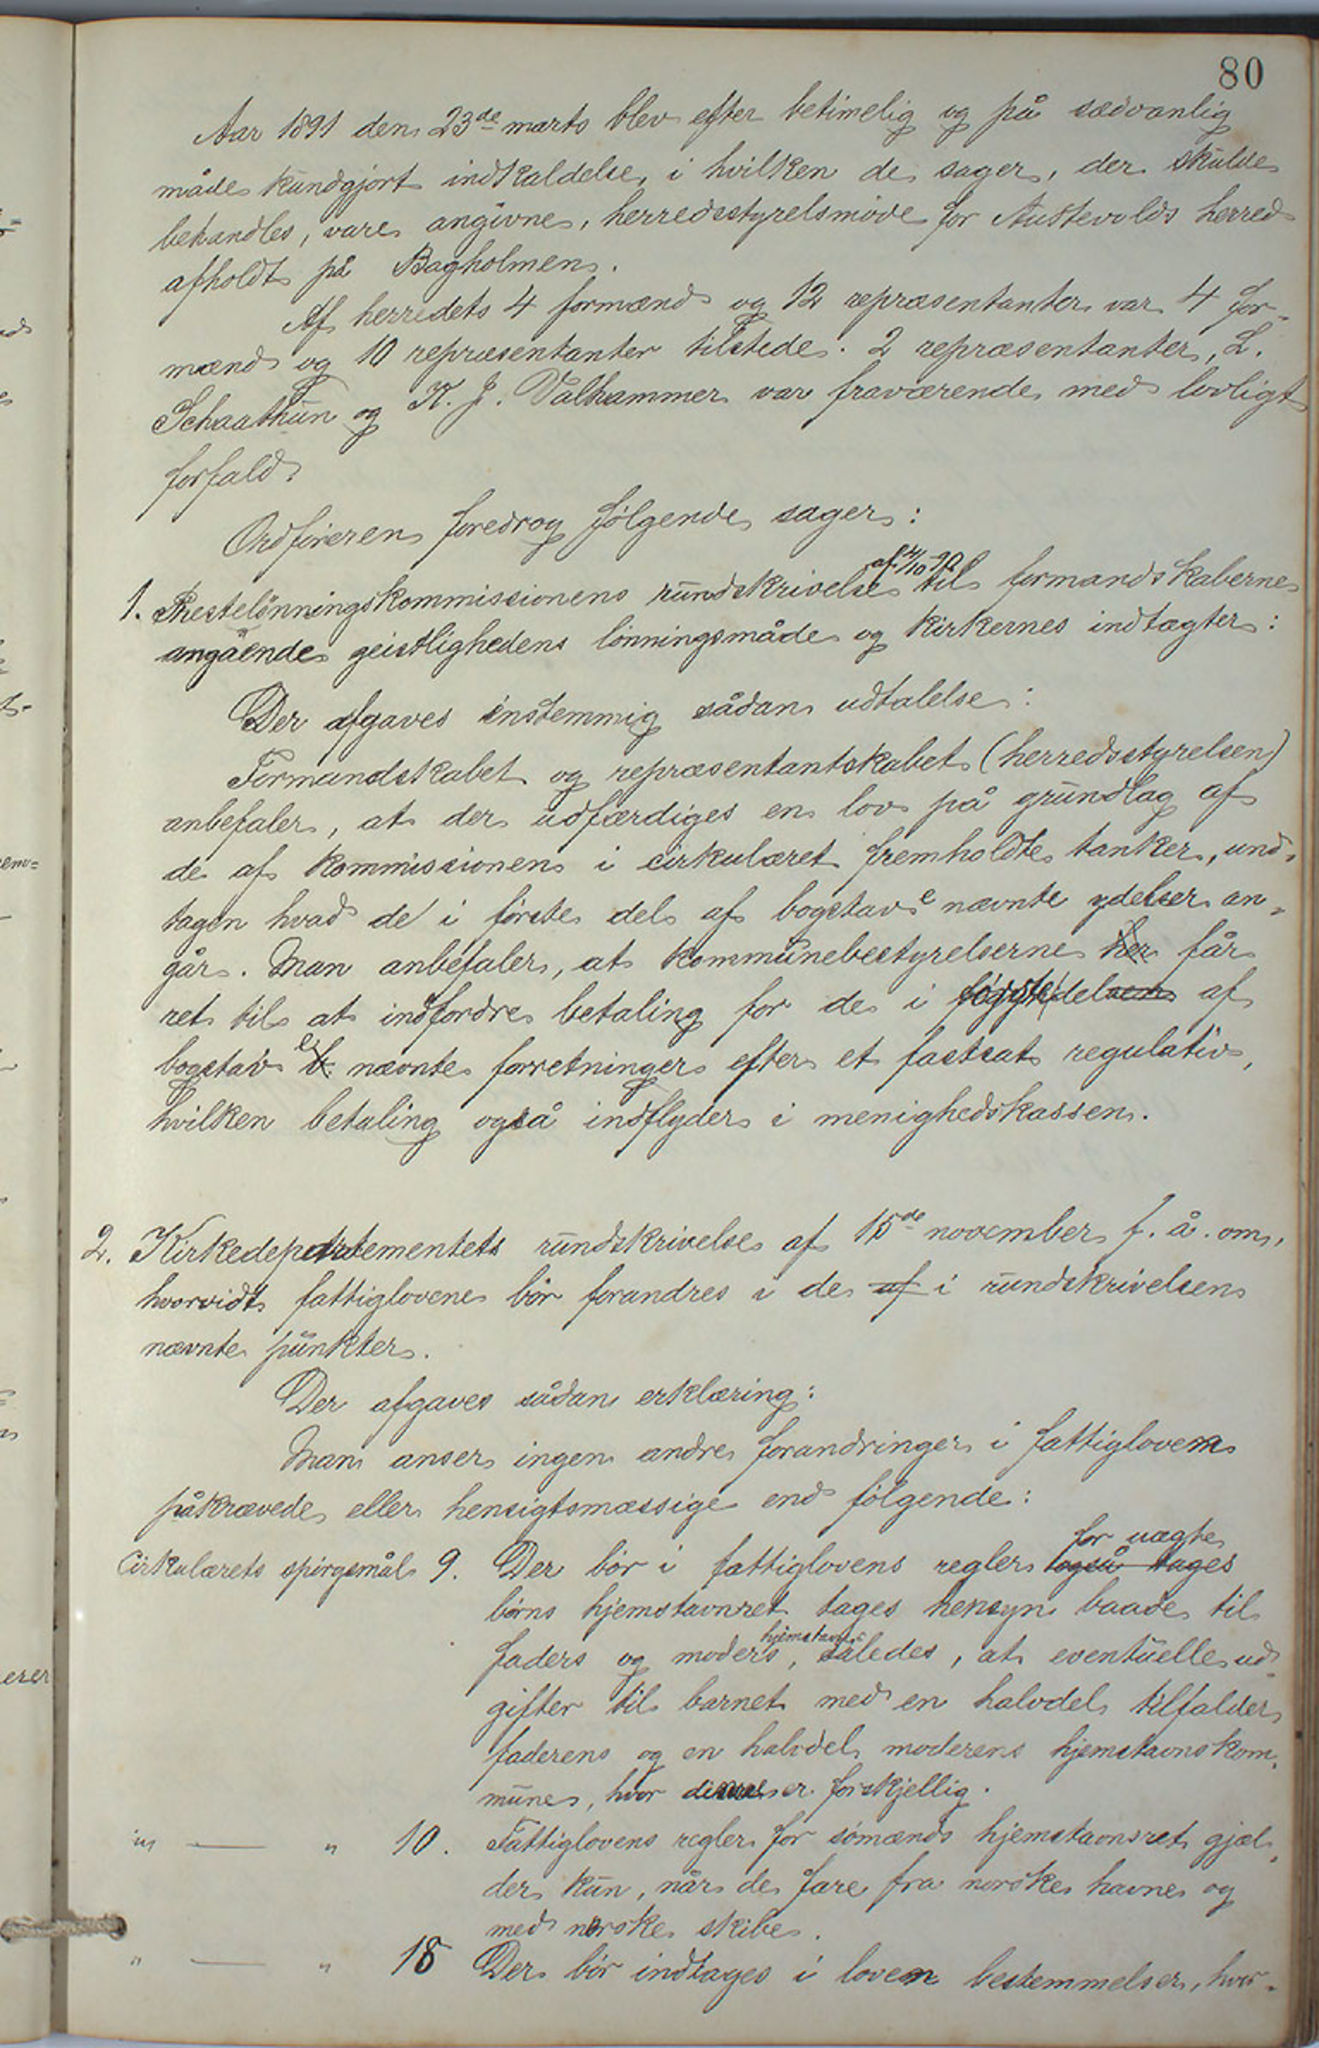 80
Aar 1891 den 23de marts blev efter betimelig og på sædvanlig
måde kundgjort indkaldelse, i hvilken de sager, der skulde
behandles, vare angivne, herredsstyrelsmöde for Austevolds herred
afholdt på Bagholmen.
Af herredets 4 formænd og 12 repræsentanter var 4 for-
mænd og 10 repræsentanter tilstede. 2 repræsentanter, L.
Schaathun og K. J. Valhammer var fraværende med lovligt
forfald.
Ordföreren foredrog fölgende sager:
af 4/10 90
1. Prestelönningskommissionens rundskrivelse til formandskaberne
angående geistlighedens lönningsmåde og kirkernes indtægter:
Der afgaves enstemmig sådan udtalelse:
Formandskabet og repræsentantskabet (herredsstyrelsen)
anbefaler, at der udfærdiges en lov på grundlag af
de af kommissionen i cirkulæret fremholdte tanker, und-
tagen hvad de i förste del af bogstav e nævnte ydelser an-
går. Man anbefaler, at kommunebestyrelserne her får
ret til at indfordre betaling for de i del af
bogstav e nævnte forretninger efter et fastsat regulativ,
hvilken betaling også indflyder i menighedskassen.
2. Kirkedepartementets rundskrivelse af 15de november f. å. om,
hvorvidt fattiglovene bör forandres i de af i rundskrivelsen
nævnte punkter.
Der afgaves sådan erklæring:
Man anser ingen andre forandringer i fattigloven
påkrævede eller hensigtsmæssige end fölgende:
for uægte
Cirkulærets spörgsmål 9. Der bör i fattiglovens regler også tages
börns hjemstavnsret tages hensyn baade til
hjemstavn
faders og moders, således, at eventuelle ud-
gifter til barnet med en halvdel tilfalder
faderens og en halvdel moderens hjemstavnskom-
mune, hvor er forskjellig.
" — " 10. Fattiglovens regler for sömænds hjemstavnsret gjæl-
der kun, når de fare fra norske havne og
med norske skibe.
" — " 18 Der bör indtages i loven bestemmelser, hvor-